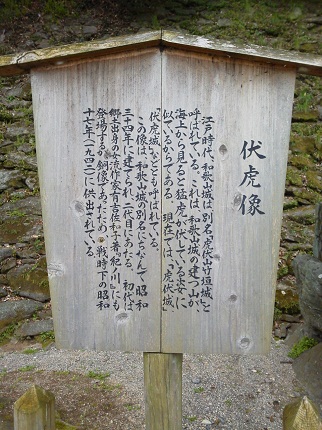 伏虎像
江戸時代、和歌山城は別名「虎伏山竹垣城」と
呼ばれている。これは、和歌山城の建つ山が、
海上から見ると猛虎が伏している姿に
似ているからである。現在では、「虎伏城」
「伏虎城」などとも呼ばれている。
この像は、和歌山城の別名にちなんで昭和
三十四年に建てられた二代目にあたる。初代は
郷土出身の女流作家有吉佐和子著『紀ノ川』にも
登場するが、銅像であったため、戦時下の昭和
十七年(一九四二)に供出されている。